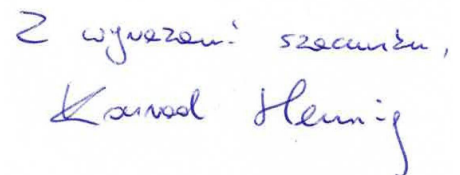 Z wyrazami szacunku,
Konrad Hennig